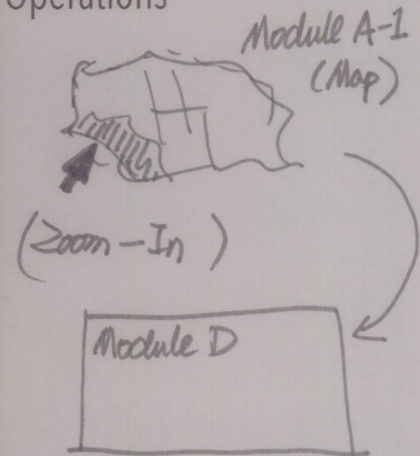 Operations
Module A-1
(Map)
(Zoom-In)
Module D